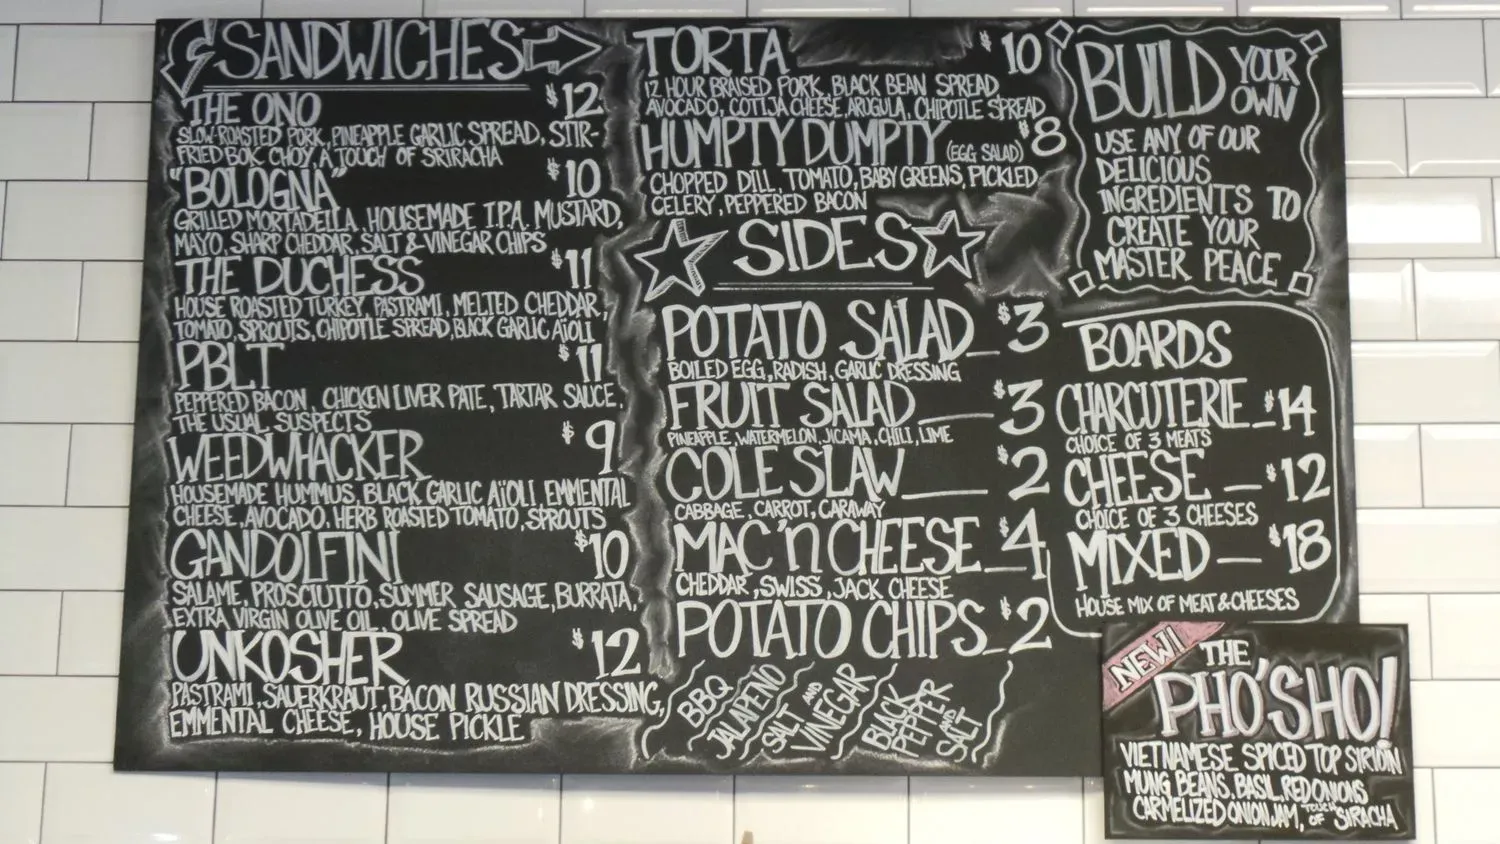 SANDWICHES
THE ONO $12
SLOW-ROASTED PORK, PINEAPPLE GARLIC SPREAD, STIR-
FRIED BOK CHOY, A TOUCH OF SRIRACHA
"BOLOGNA" $10
GRILLED MORTADELLA, HOUSEMADE I.P.A. MUSTARD,
MAYO, SHARP CHEDDAR, SALT & VINEGAR CHIPS
THE DUCHESS $11
HOUSE ROASTED TURKEY, PASTRAMI, MELTED CHEDDAR,
TOMATO, SPROUTS, CHIPOTLE SPREAD, BLACK GARLIC AÏOLI
PBLT $11
PEPPERED BACON, CHICKEN LIVER PATE, TARTAR SAUCE,
THE USUAL SUSPECTS
WEEDWHACKER $9
HOUSEMADE HUMMUS, BLACK GARLIC AÏOLI, EMMENTAL
CHEESE, AVOCADO, HERB ROASTED TOMATO, SPROUTS
GANDOLFINI $10
SALAME, PROSCIUTTO, SUMMER SAUSAGE, BURRATA,
EXTRA VIRGIN OLIVE OIL, OLIVE SPREAD
UNKOSHER $12
PASTRAMI, SAUERKRAUT, BACON RUSSIAN DRESSING,
EMMENTAL CHEESE, HOUSE PICKLE
TORTA $10
12 HOUR BRAISED PORK, BLACK BEAN SPREAD,
AVOCADO, COTIJA CHEESE, ARUGULA, CHIPOTLE SPREAD
HUMPTY DUMPTY (EGG SALAD) $8
CHOPPED DILL, TOMATO, BABY GREENS, PICKLED
CELERY, PEPPERED BACON
SIDES
POTATO SALAD $3
BOILED EGG, RADISH, GARLIC DRESSING
FRUIT SALAD $3
PINEAPPLE, WATERMELON, JICAMA, CHILI, LIME
COLE SLAW $2
CABBAGE, CARROT, CARAWAY
MAC 'n CHEESE $4
CHEDDAR, SWISS, JACK CHEESE
POTATO CHIPS $2
BBQ
JALAPENO
SALT AND
VINEGAR
BLACK
PEPPER AND
SALT
BUILD YOUR
OWN
USE ANY OF OUR
DELICIOUS
INGREDIENTS TO
CREATE YOUR
MASTER PEACE
BOARDS
CHARCUTERIE $14
CHOICE OF 3 MEATS
CHEESE $12
CHOICE OF 3 CHEESES
MIXED $18
HOUSE MIX OF MEAT & CHEESES
NEW!
THE
PHO'SHO!
VIETNAMESE SPICED TOP SIRLOIN
MUNG BEANS, BASIL, RED ONIONS
CARMELIZED ONION JAM, TOUCH OF SIRACHA